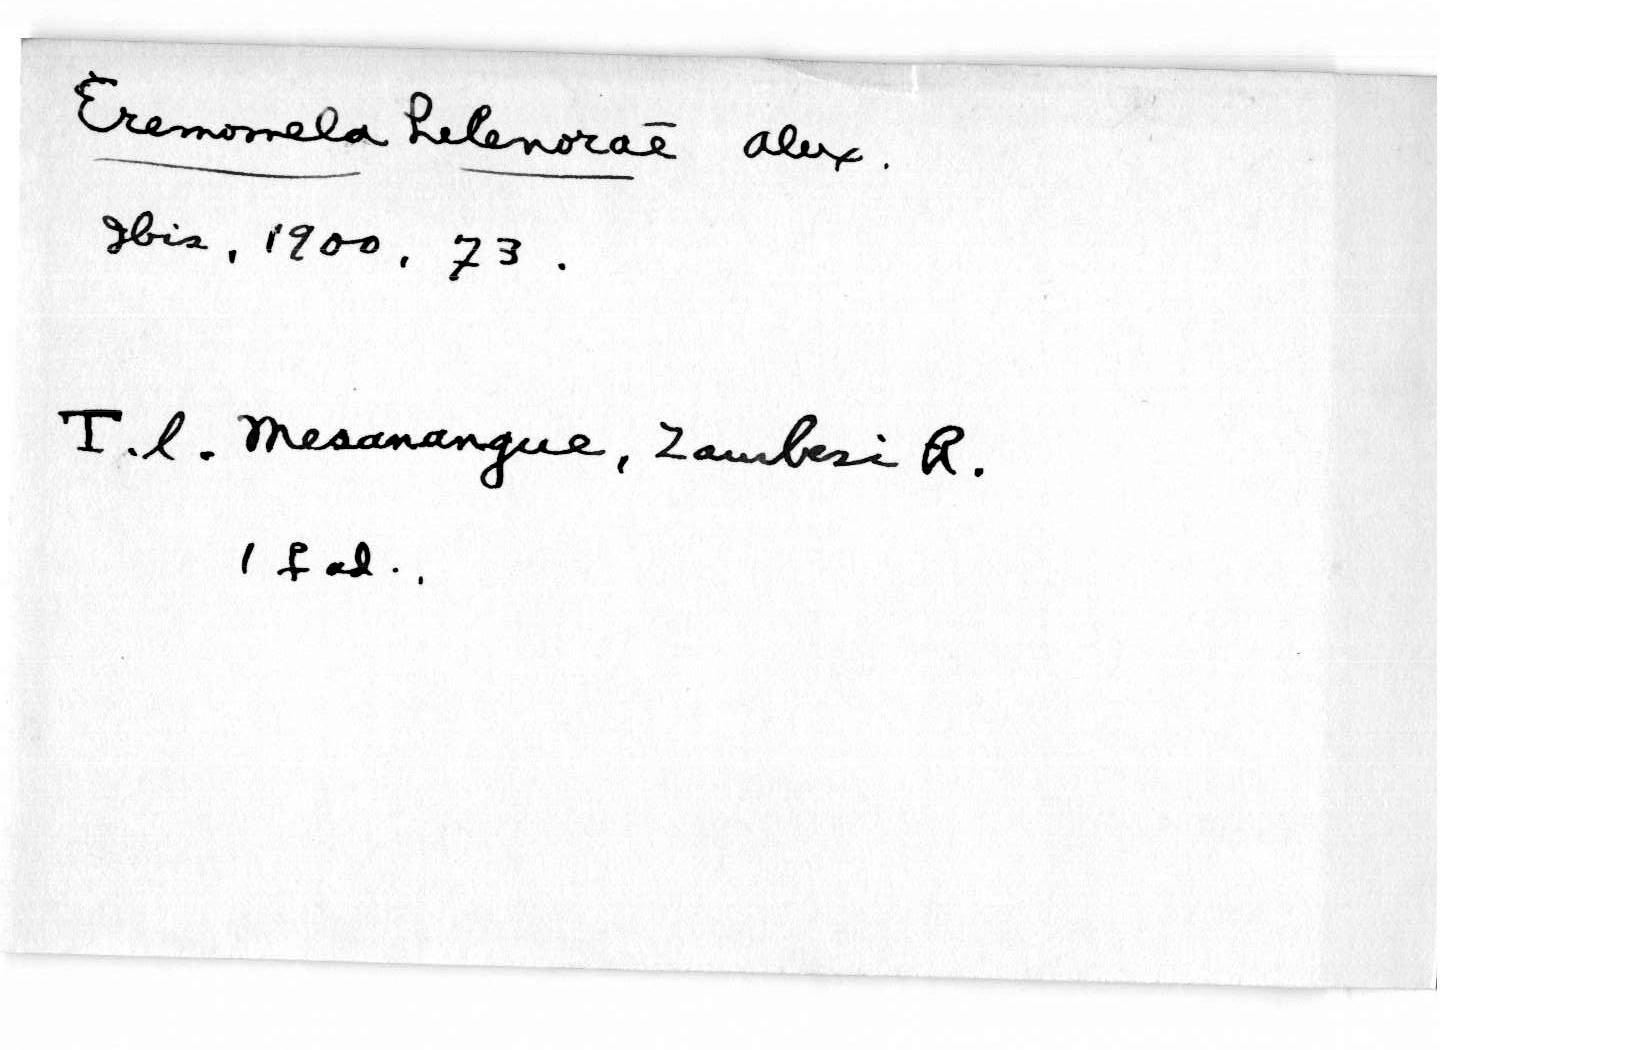 Eremomela helenorae Alex.
Ibis, 1900, 73.
T.l. Mesanangue, Zambesi R.
1 ♀ ad.,